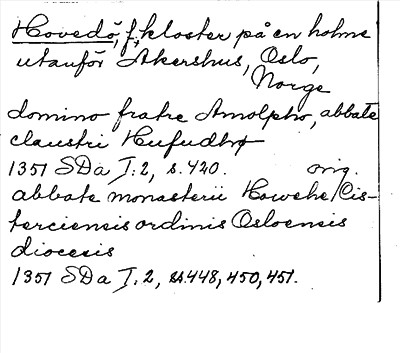 Hovedö, f. kloster på en holme
utanför Akershus, Oslo,
Norge
domino fratre Arnolpho, abbate
claustri Hufudhø
1351 SDa I:2, s. 420. orig.
abbate monasterii Howehe/Cis-
terciensis ordinis Osloensis
diocesis
1351 SDa I:2, ss. 448, 450, 451.